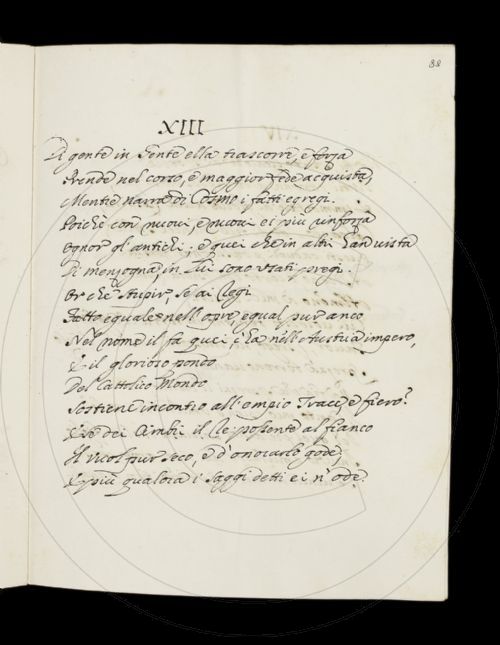 88
XIII
Di gente in Gente ella trascorre, e forza
Prende nel corso, e maggior fede acquista,
Mentre narra di Cosmo i fatti egregi.
Poichè con nuovi, e nuovi ei più rinforza
Ognor gl'antichi; e quei che in altri han vista
Di menzogna, in Lui sono usati pregi.
Or che stupir se ai Regi
Fatto eguale nell'opre, egual pur anco
Nel nome il fa quei, c'ha nell'Austria impero,
E il glorioso pondo
Del Cattolico Mondo
Sostiene incontro all'empio Trace, e fiero?
E Re dei Cimbri il Re possente al fianco
Il vuol pur seco, e d'onorarlo gode,
E più qualora i Saggi detti ei n'ode.